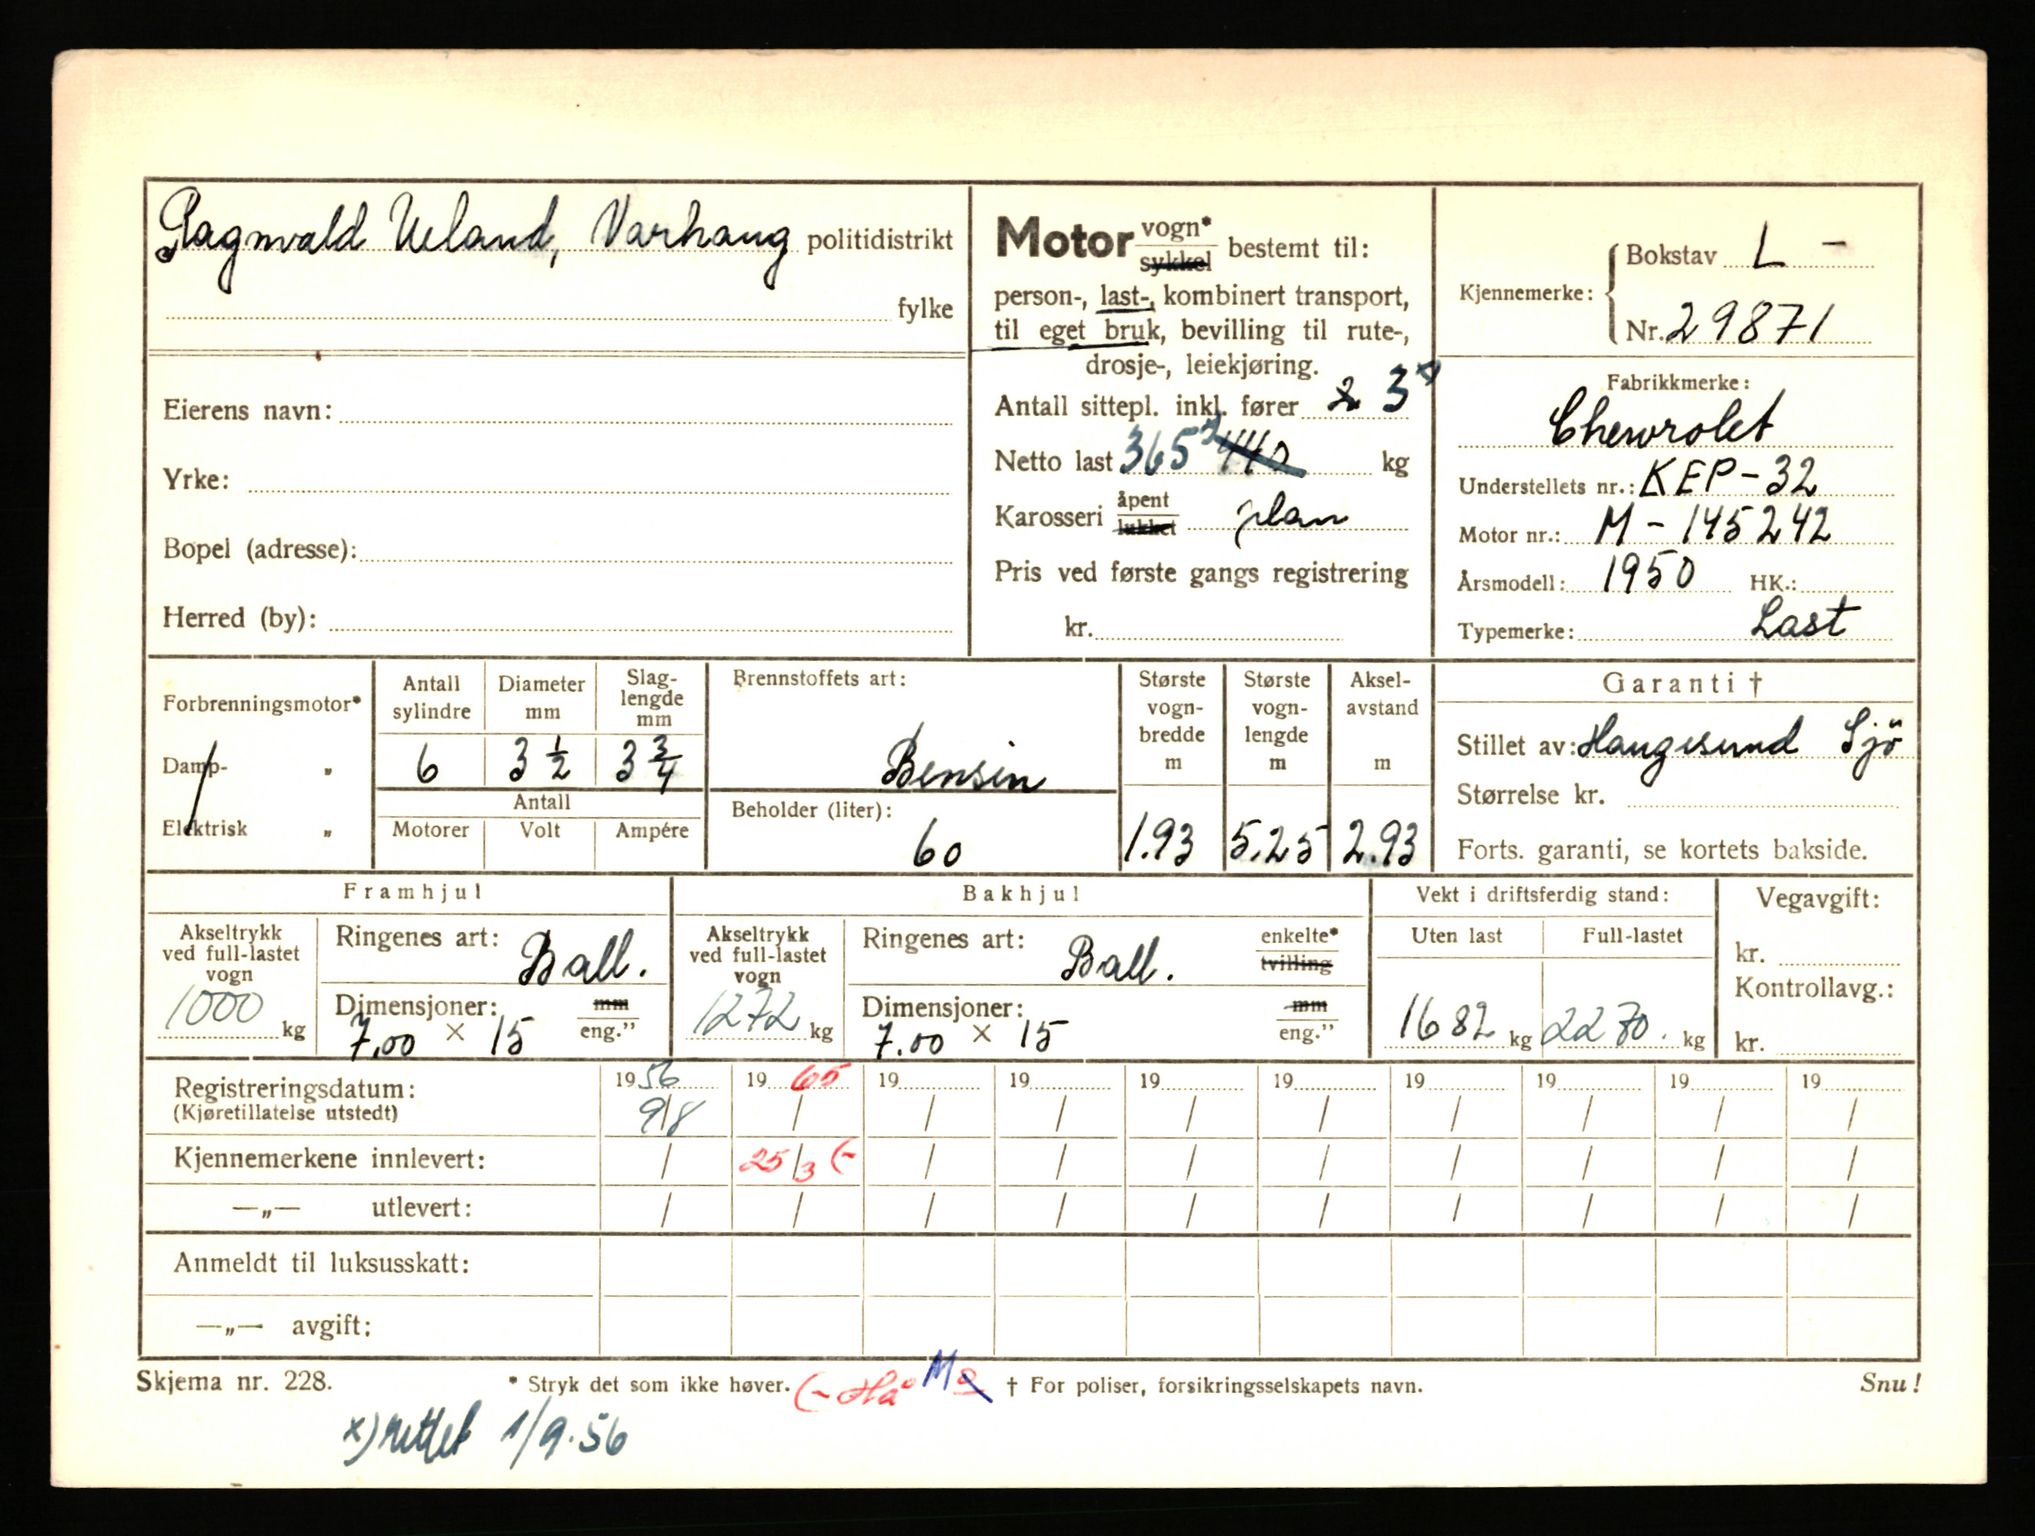 Ragnvald Ueland, Varhaug politidistrikt
fylke
Eierens navn:
Yrke:
Bopel (adresse):
Herred (by):
Motor vogn* sykkel bestemt til:
person-, last-, kombinert transport,
til eget bruk, bevilling til rute-,
drosje-, leiekjøring.
Antall sittepl. inkl. fører 2 3 x)
Netto last 365 x) 440 kg
Karosseri åpent lukket plan
Pris ved første gangs registrering
kr.
Kjennemerke: Bokstav L -
Nr. 29871
Fabrikkmerke:
Chevrolet
Understellets nr.: KEP-32
Motor nr.: M-145242
Årsmodell: 1950 HK.:
Typemerke: Last
Forbrenningsmotor*
Damp- „
Elektrisk „
Antall sylindre
6
Diameter mm
3 1/2
Slag-lengde mm
3 3/4
Antall
Motorer Volt Ampére
Brennstoffets art:
Bensin
Beholder (liter):
60
Største vogn-bredde m
1.93
Største vogn-lengde m
5.25
Aksel-avstand m
2.93
Garanti †
Stillet av: Haugesund Sjö
Størrelse kr.
Forts. garanti, se kortets bakside.
Framhjul
Akseltrykk ved full-lastet vogn
1000 kg
Ringenes art: Ball.
Dimensjoner: mm
7.00 × 15 eng.”
Bakhjul
Akseltrykk ved full-lastet vogn
1272 kg
Ringenes art: Ball. enkelte* tvilling
Dimensjoner: mm
7.00 × 15 eng.”
Vekt i driftsferdig stand:
Uten last Full-lastet
1682 kg 2270. kg
Vegavgift:
kr.
Kontrollavg.:
kr.
Registreringsdatum: 1956 1965 19 19 19 19 19 19 19 19
(Kjøretillatelse utstedt) 9/8 / / / / / / / / /
Kjennemerkene innlevert: / 25/3 (- / / / / / / / /
—„— utlevert: / / / / / / / / / /
Anmeldt til luksusskatt:
—„— avgift:
Skjema nr. 228. * Stryk det som ikke høver. (- Hå M † For poliser, forsikringsselskapets navn. Snu!
x) rettet 1/9.56